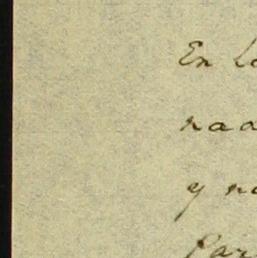 En l
naa
y n
Par